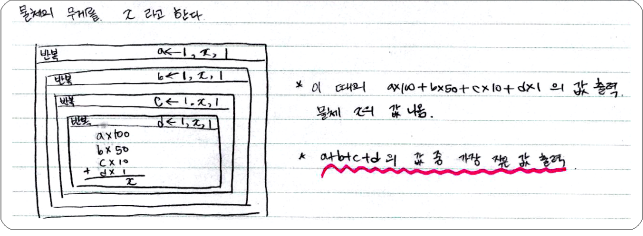 물체의 무게를 x 라고 한다
반복 a←1, x, 1
반복 b←1, x, 1
반복 c←1, x, 1
반복 d←1, x, 1
a×100
b×50
c×10
+ d×1
x
* 이 때의 a×100+b×50+c×10+d×1 의 값 출력.
물체 x의 값 나옴.
* a+b+c+d의 값 중 가장 작은 값 출력.